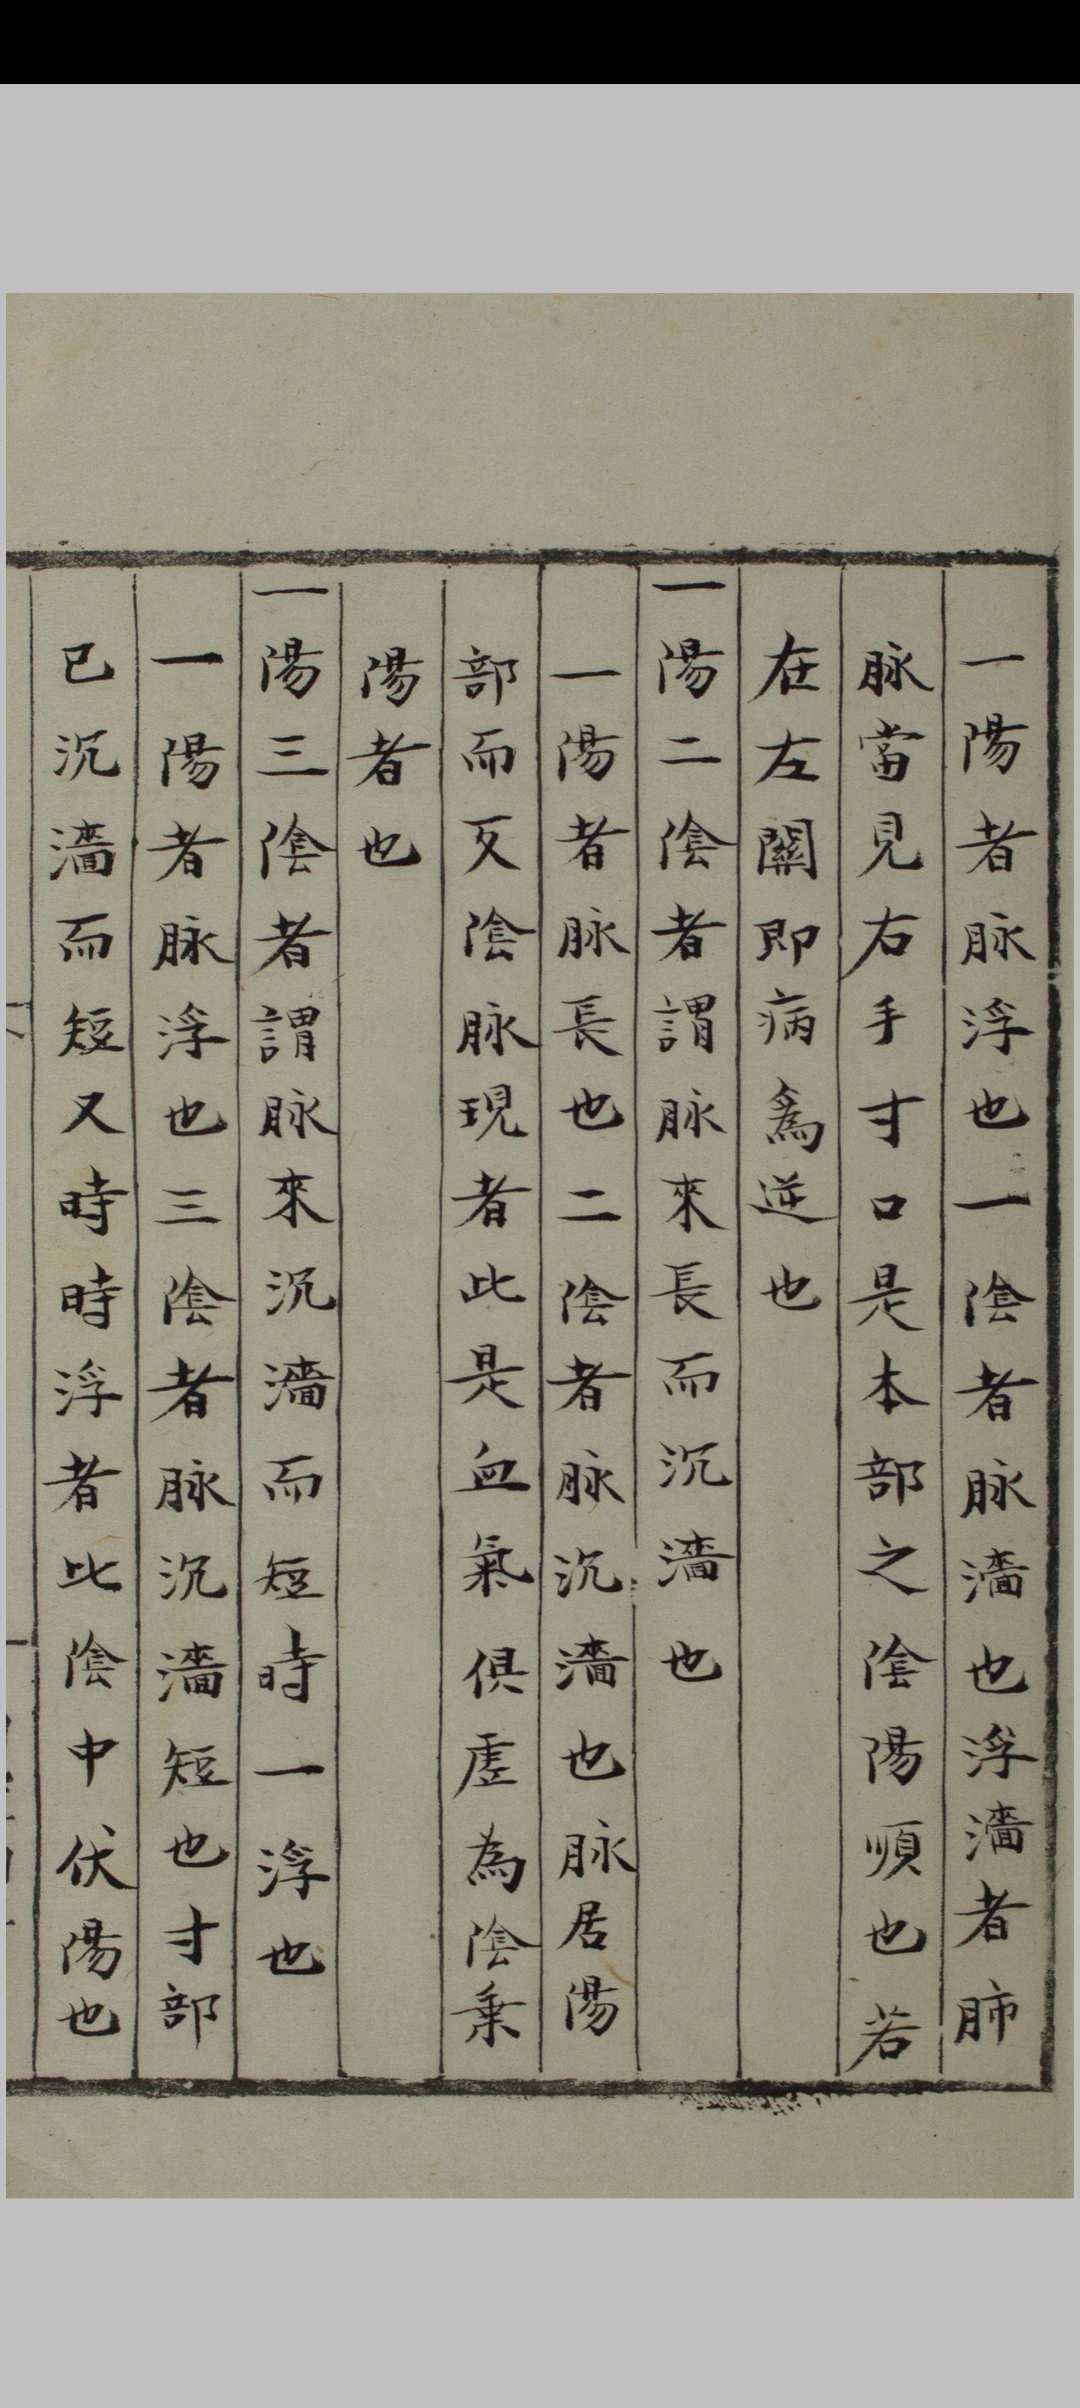 一陽者脉浮也一陰者脉濇也浮濇者肺
脉當見右手寸口是本部之陰陽順也若
在左關即病為逆也
一陽二陰者謂脉來長而沉濇也
一陽者脉長也二陰者脉沉濇也脉居陽
部而反陰脉現者此是血氣俱虛為陰乗
陽者也
一陽三陰者謂脉來沉濇而短時一浮也
一陽者脉浮也三陰者脉沉濇短也寸部
已沉濇而短又時時浮者比陰中伏陽也